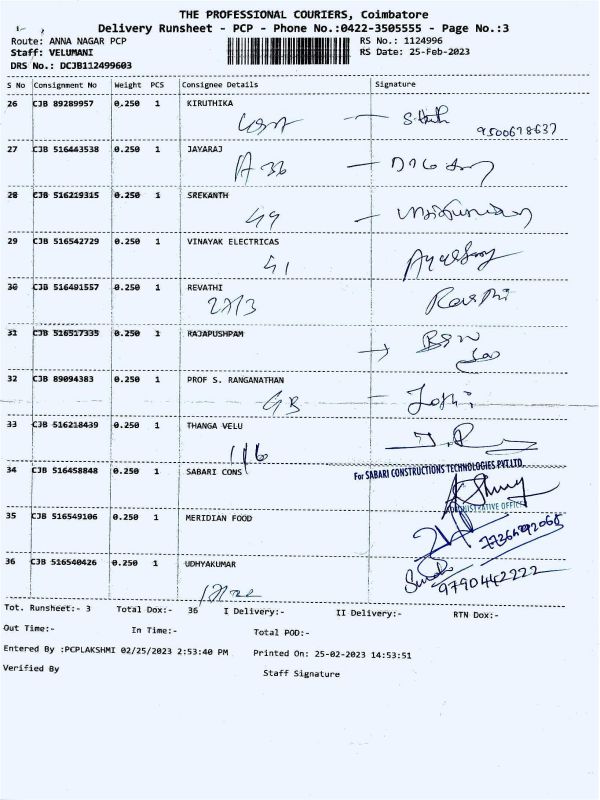 THE PROFESSIONAL COURIERS, Coimbatore
Delivery Runsheet - PCP - Phone No.:0422-3505555 - Page No.:3
Route: ANNA NAGAR PCP RS No.: 1124996
Staff: VELUMANI RS Date: 25-Feb-2023
DRS No.: DCJB112499603
S No Consignment No Weight PCS Consignee Details Signature
26 CJB 89289957 0.250 1 KIRUTHIKA
9500678637
27 CJB 516443538 0.250 1 JAYARAJ
28 CJB 516219315 0.250 1 SREKANTH
49
29 CJB 516542729 0.250 1 VINAYAK ELECTRICAS
41
30 CJB 516491557 0.250 1 REVATHI
Revathi
31 CJB 516517335 0.250 1 RAJAPUSHPAM
32 CJB 89094383 0.250 1 PROF S. RANGANATHAN
33 CJB 516218439 0.250 1 THANGA VELU
34 CJB 516458848 0.250 1 SABARI CONS
For SABARI CONSTRUCTIONS TECHNOLOGIES PVT.LTD.
ADMINISTRATIVE OFFICE
35 CJB 516549106 0.250 1 MERIDIAN FOOD
36 CJB 516540426 0.250 1 UDHYAKUMAR
9790442222
Tot. Runsheet:- 3 Total Dox:- 36 I Delivery:- II Delivery:- RTN Dox:-
Out Time:- In Time:- Total POD:-
Entered By :PCPLAKSHMI 02/25/2023 2:53:40 PM Printed On: 25-02-2023 14:53:51
Verified By Staff Signature